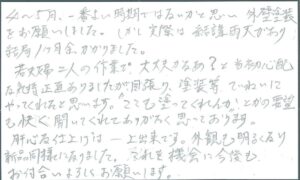 4〜5月、一番よい時期ではないかと思い 外壁塗装
をお願いしました。しかし実際は結講雨天があり
結局1ヶ月余かかりました。
若夫婦二人の作業で大丈夫かなあ?と当初心配
な気持正直ありましたが頑張り、塗装等ていねいに
やってくれたと思います。"ここも塗ってくれんか"とかの要望
も快く聞いてくれてありがたく思っております。
肝心な仕上りは一 上出来です。外観も明るくなり
新品同様になりました。これを機会に今後も
お付合いよろしくお願いします。